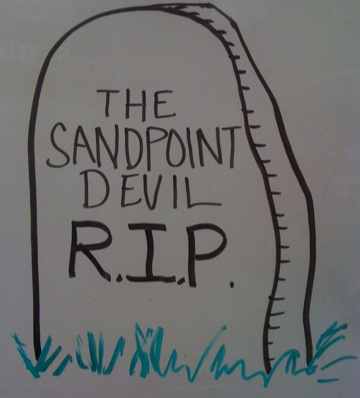 THE
SANDPOINT
DEVIL
R.I.P.